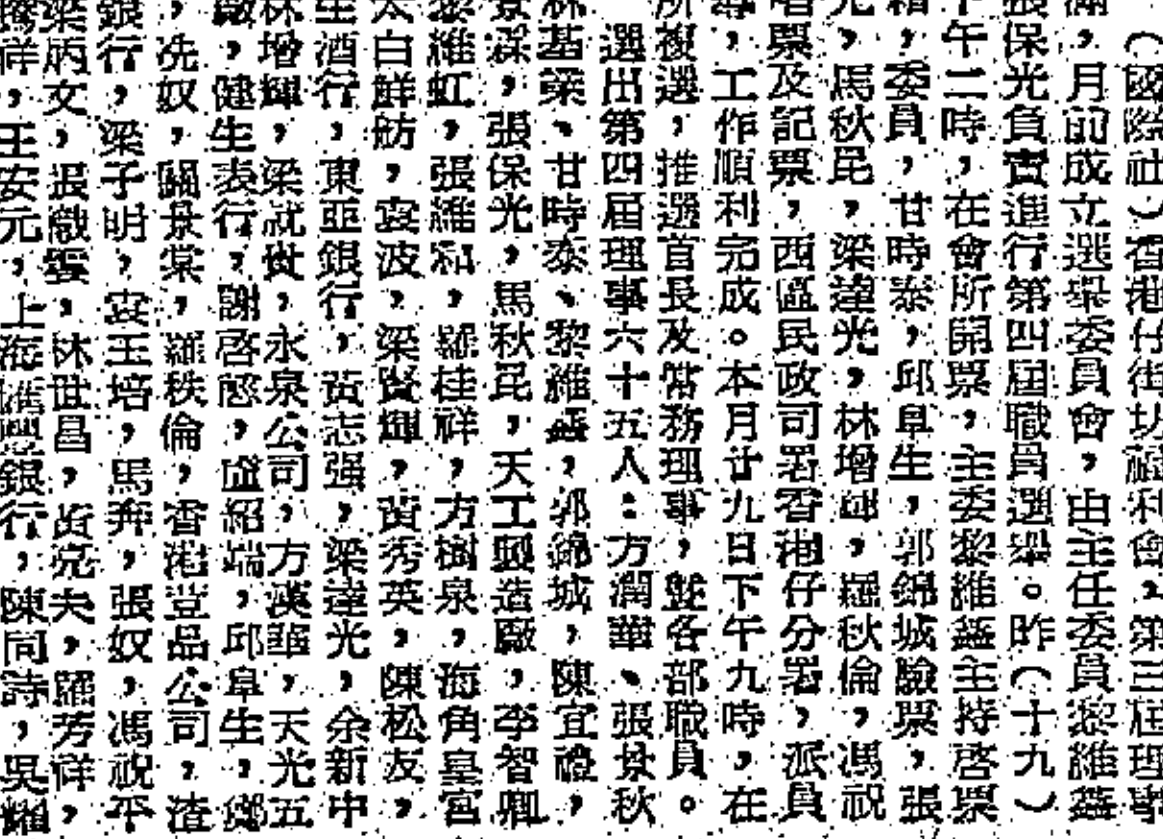 （國際社）香港仔街坊福利會，第三屆理事
滿，月前成立選舉委員會，由主任委員黎維鑫
張保光負責進行第四屆職員選舉。昨（十九）
下午二時，在會所開票，主委黎維鑫主持啓票
，委員，甘時泰，邱阜生，郭錦城驗票，張
光，馬秋民，梁達光，林增輝，羅秋倫，馮祝
唱票及記票，西區民政司署香港仔分署，派員
導，工作順利完成。本月廿九日下午九時，在
所複選，推選首長及常務理事，暨各部職員。
選出第四屆理事六十五人：方潤華、張景秋
林基榮、甘時泰、黎維鑫，郭錦城，陳宜禮，
景深，張保光，馬秋民，天工製造廠，李智剛
黎維虹，張維和，羅桂祥，方樹泉，海角皇宮
太白鮮舫，袁波，梁賢輝，黃秀英，陳松友，
生酒行，東亞銀行，黃志强，梁達光，余新中
林增輝，梁就世，永泉公司，方漢華，天光五
廠，健生表行，謝啓愍，盧紹端，邱阜生，鄭
，冼奴，關景棠，羅秩倫，香港荳品公司，渣
銀行，梁子明，袁玉培，馬弄，張奴，馮祝平
梁炳文，張啟賢，林世昌，黃亮夫，羅芳祥，
騰祥，王安元，上海滙豐銀行，陳同詩，吳耀